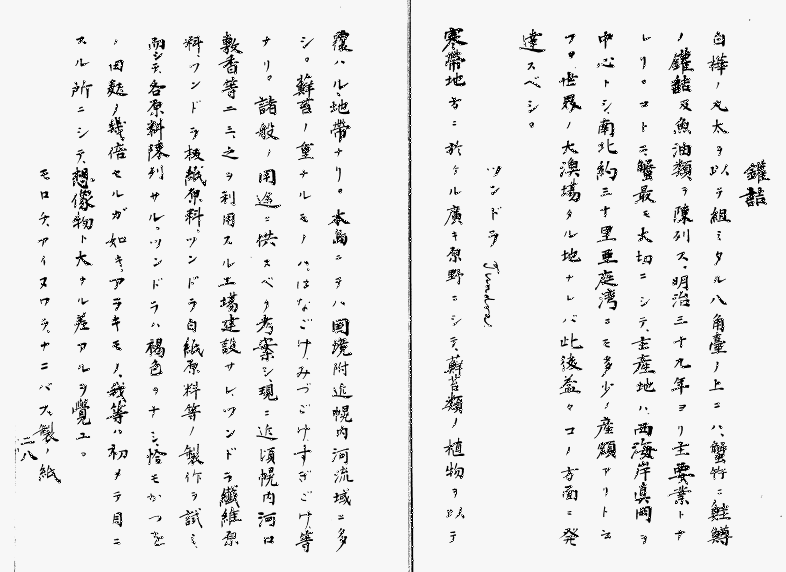 罐詰
白樺ノ丸太ヲ以テ組ミタル八角臺ノ上ニハ、蟹竝ニ鮭鱒
ノ罐詰及魚油類ヲ陳列ス。明治三十九年ヨリ主要業トナ
レリ。コトニ蟹最モ大切ニシテ、主産地ハ西海岸眞岡ヲ
中心トシ、南北約三十里亜庭湾ニモ多少ノ産額アリト云
フ。世界ノ大漁場タル地ナレバ此後益々コノ方面ニ発
達スベシ。
ツンドラ Tundora
寒帶地方ニ於ケル廣キ原野ニシテ、蘚苔類ノ植物ヲ以テ
覆ハル地帶ナリ。本島ニテハ国境附近幌内河流域ニ多
シ。蘚苔ノ重ナルモノハ、はなごけ、みづごけ、すぎごけ、等
ナリ。諸般ノ用途ニ供スベク考案シ、現ニ近頃幌内河口
敷香等ニテ之ヲ利用スル工場建設サレ、ツンドラ纖維原
料、ツンドラ板紙原料、ツンドラ白紙原料等ノ製作ヲ試ミ
各原料陳列サル。ツンドラハ褐色ヲナシ、恰モかつを
田麩ノ幾倍セルガ如キ、アラキモノ、我等ハ初メテ目ニ
スル所ニシテ、想像物ト大ナル差アルヲ覺ユ。
モロチ、アイヌワラ、ナニバフ、製ノ紙
二八